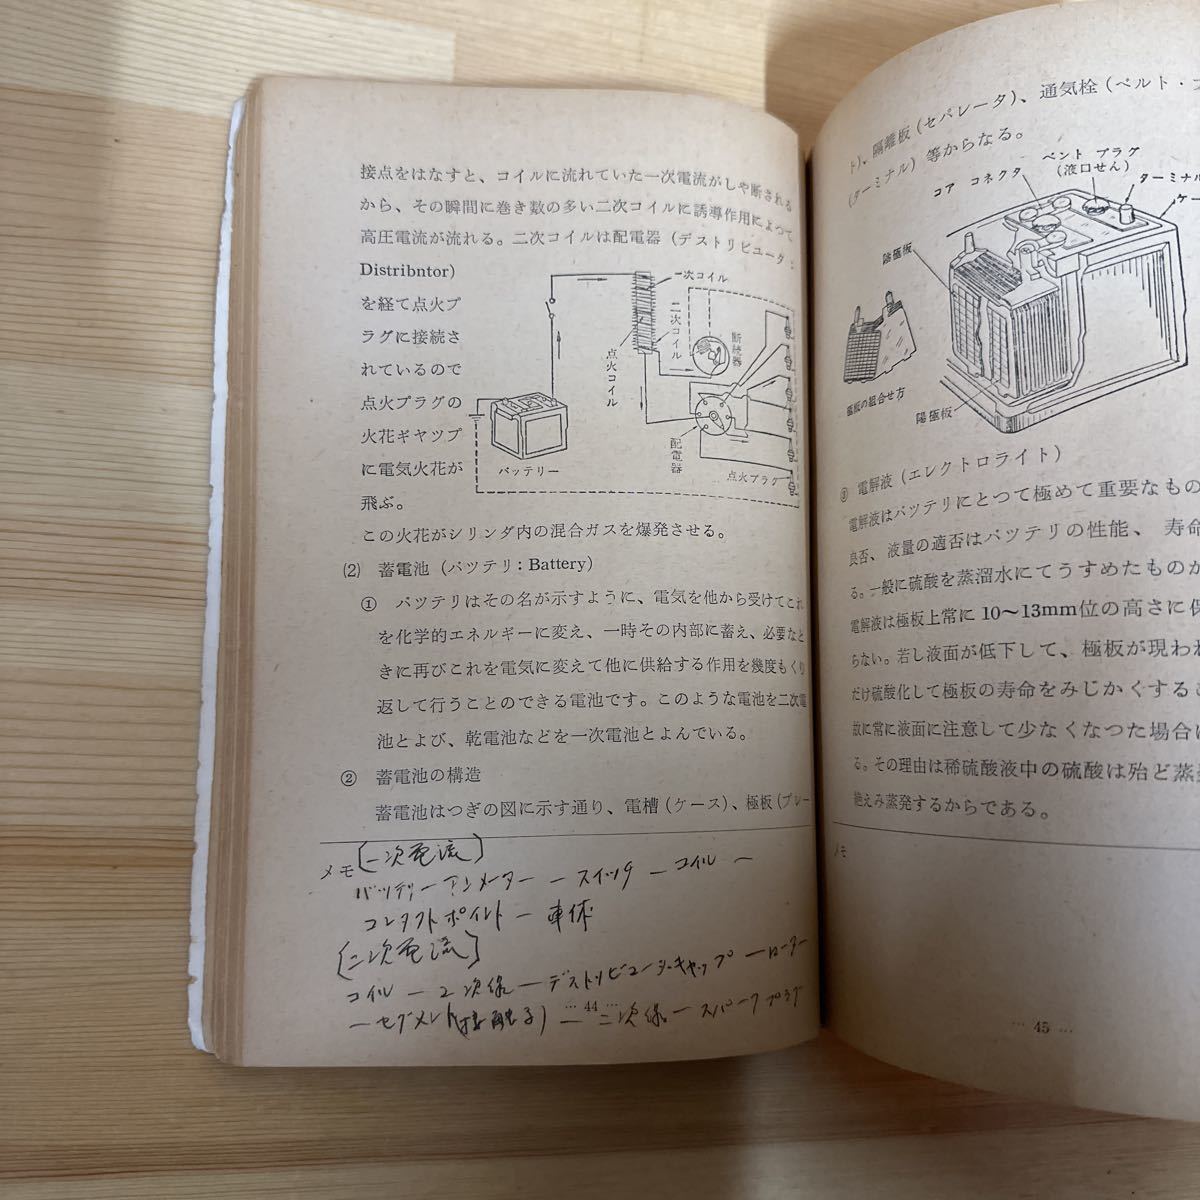 接点をはなすと、コイルに流れていた一次電流がしや断される
から、その瞬間に巻き数の多い二次コイルに誘導作用によつて
高圧電流が流れる。二次コイルは配電器(デストリビユータ:
Distribntor)
を経て点火プ
ラグに接続さ
れているので
点火プラグの
火花ギヤツプ
に電気火花が
飛ぶ。
一次コイル
二次コイル
断続器
点火コイル
配電器
バッテリー
点火プラグ
この火花がシリンダ内の混合ガスを爆発させる。
(2) 蓄電池(バツテリ: Battery)
① バツテリはその名が示すように、電気を他から受けてこれ
を化学的エネルギーに変え、一時その内部に蓄え、必要なと
きに再びこれを電気に変えて他に供給する作用を幾度もくり
返して行うことのできる電池です。このような電池を二次電
池とよび、乾電池などを一次電池とよんでいる。
② 蓄電池の構造
蓄電池はつぎの図に示す通り、電槽(ケース)、極板(プレー
メモ
(一次電流)
バッテリーアンメーター ー スイッチ ー コイル ー
コンタクトポイント ー 車体
(二次電流)
コイル ー 2次線 ー デストリビューターキャップ ー ローター
ー セグメント(接触子) ー 二次線 ー スパークプラグ
… 44 …
ト)、隔離板(セパレータ)、通気栓(ベルト・プ
(ターミナル)等からなる。
コア コネクタ
ベント プラグ
(液口せん)
ターミナル
ケー
陰極板
極板の組合せ方
陽極板
③ 電解液(エレクトロライト)
電解液はバツテリにとつて極めて重要なもの
良否、液量の適否はバツテリの性能、寿命
る。一般に硫酸を蒸溜水にてうすめたものが
電解液は極板上常に 10〜13mm位の高さに保
らない。若し液面が低下して、極板が現われ
だけ硫酸化して極板の寿命をみじかくする
故に常に液面に注意して少なくなつた場合は
る。その理由は稀硫酸液中の硫酸は殆ど蒸
絶えみ蒸発するからである。
メモ
… 45 …